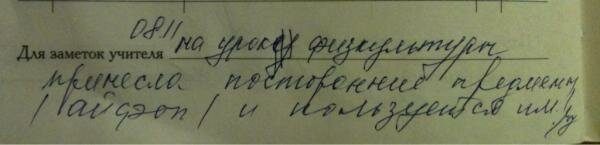 0811
Для заметок учителя на уроке физкультуры
принесла посторонние предметы
/айфэп/ и пользуется им.